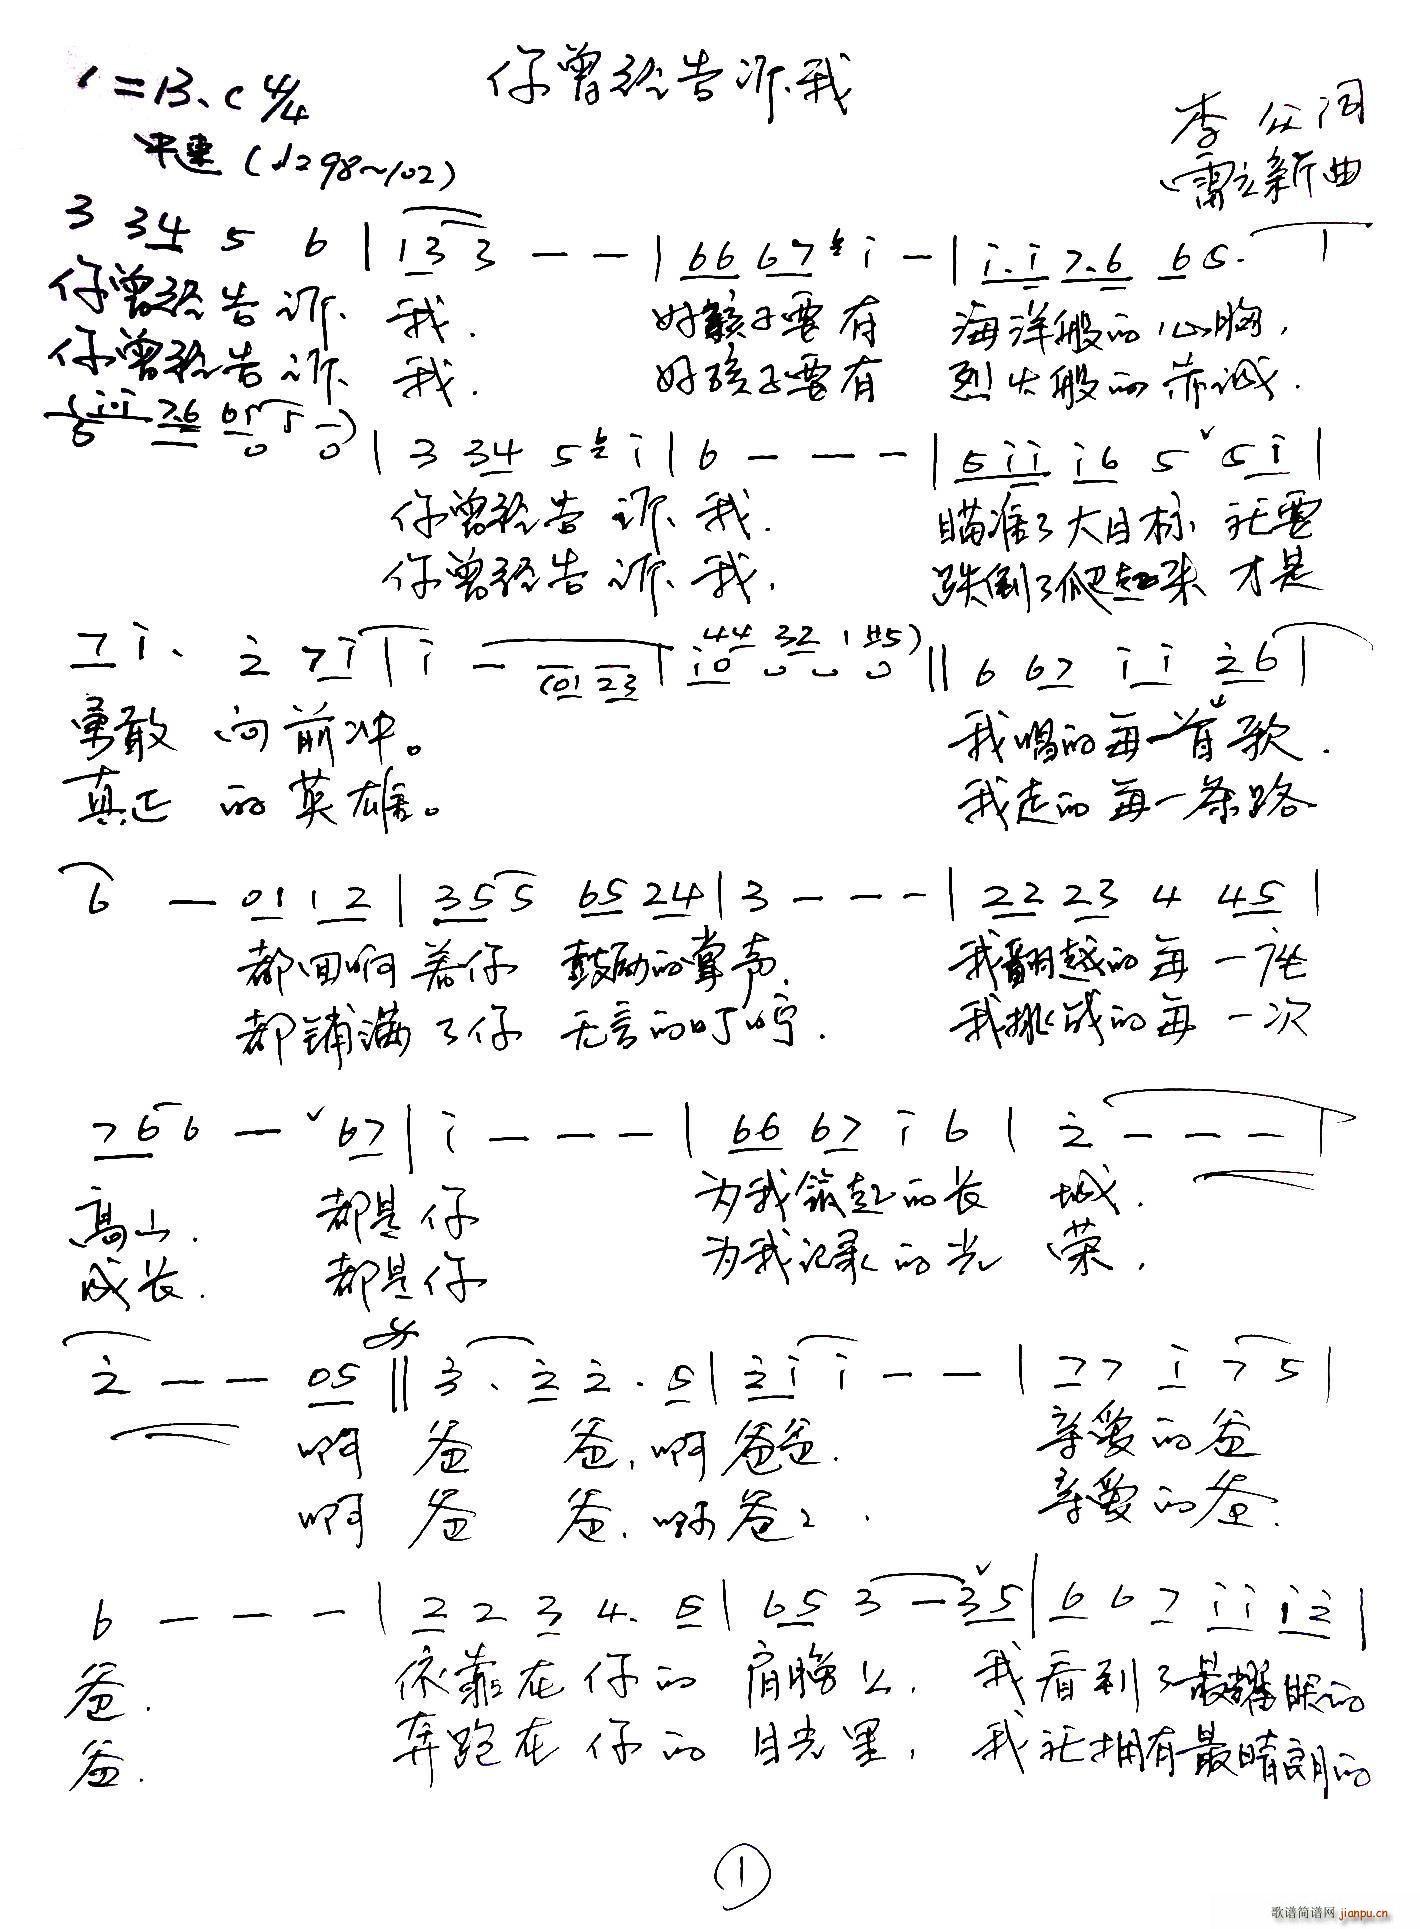 你曾经告诉我
1=B、C 4/4
中速(♩=98~102)
李 众词
雷立新曲
3 34 5 6 | 133 - - | 66 67 i - | i.i 7.6 65. |
你曾经告诉 我. 好孩子要有 海洋般的心胸,
你曾经告诉 我. 好孩子要有 烈火般的赤诚.
| 3 34 5 i | 6 - - - | 5ii i6 5 5i |
你曾经告诉我. 瞄准了大目标 就要
你曾经告诉我. 跌倒了爬起来 才是
7i. 2 7i | i - (01 23 | i0 44 32 1 #5) || 6 67 i i 26 |
勇敢 向前冲。 我唱的每一首歌.
真正 的英雄。 我走的每一条路
6 - 01 12 | 355 65 24 | 3 - - - | 22 23 4 45 |
都回响着你 鼓励的掌声. 我翻越的每一座
都铺满了你 无言的叮咛. 我挑战的每一次
766 - 67 | i - - - | 66 67 i 6 | 2 - - - |
高山. 都是你 为我筑起的长 城.
成长. 都是你 为我记录的光 荣.
2 - - 05 || 3. 2 2. 5 | 2ii - - | 77 i 75 |
啊 爸 爸,啊爸爸. 亲爱的爸
啊 爸 爸,啊爸爸. 亲爱的爸.
6 - - - | 2 2 3 4. 5 | 65 3 - 35 | 6 6 7 ii i2 |
爸. 依靠在你的 肩膀上, 我看到了最耀眼的
爸. 奔跑在你的 目光里, 我就拥有最晴朗的
1
歌谱简谱网 jianpu.cn